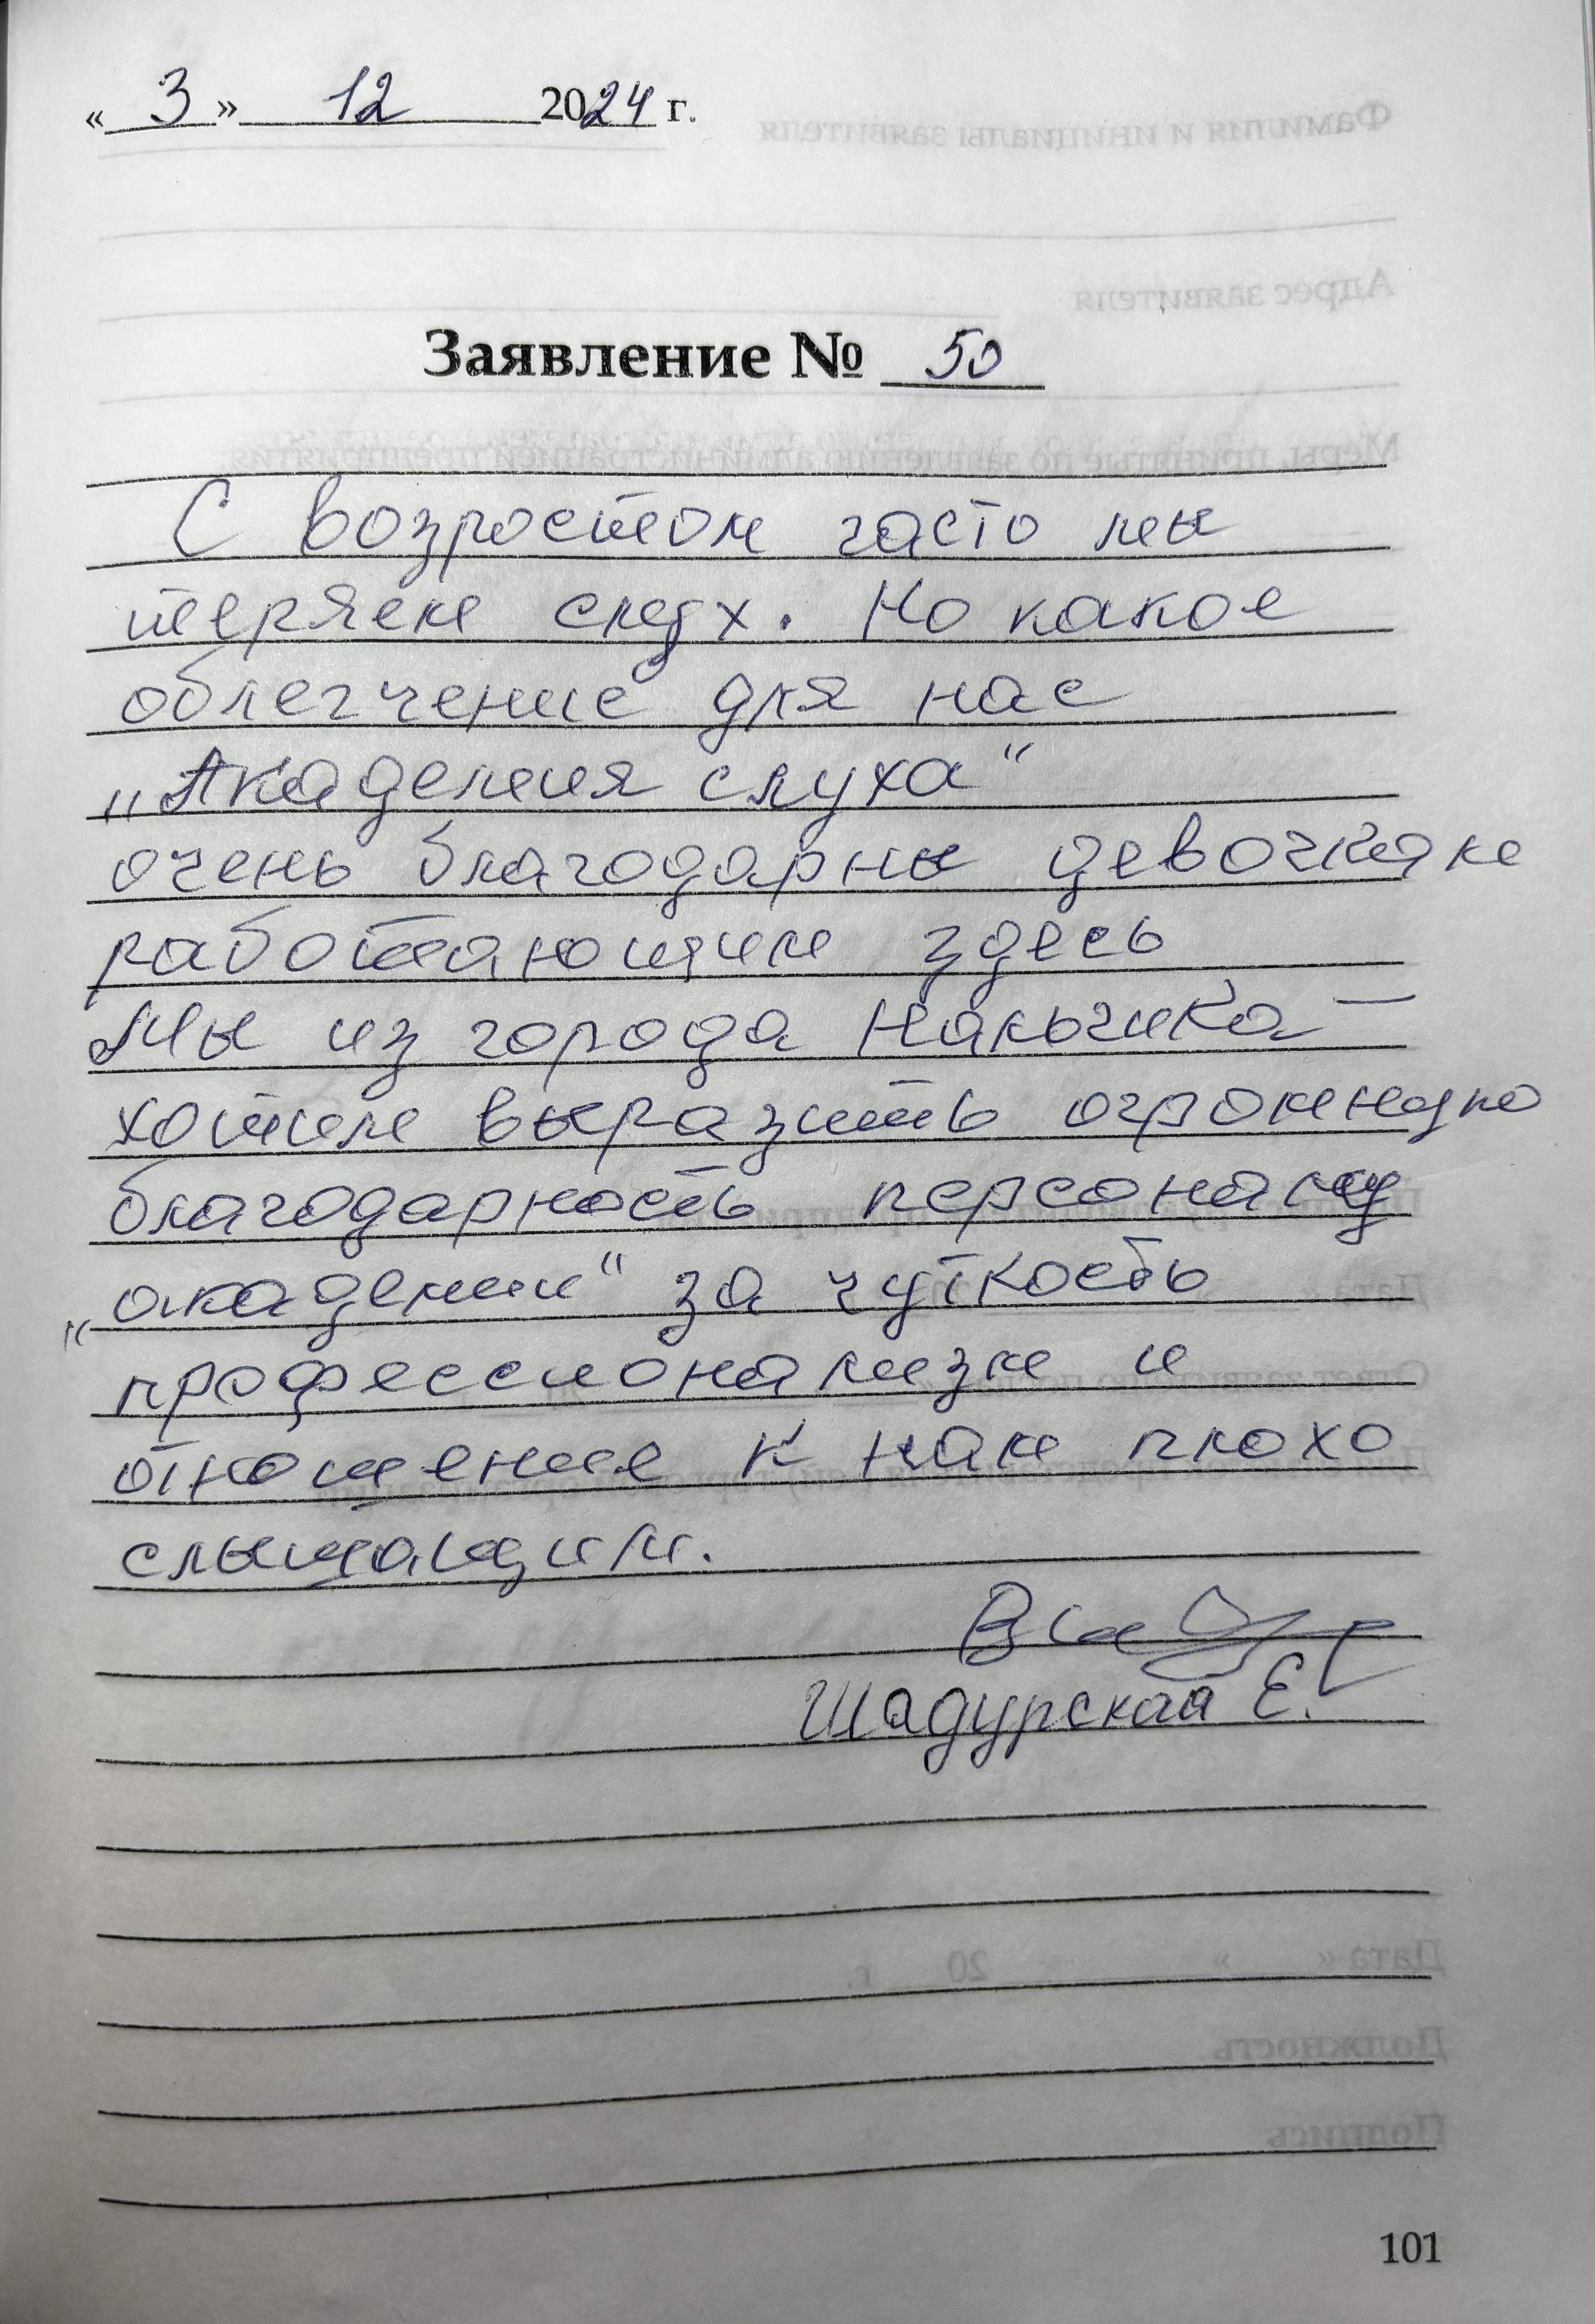 « 3 » 12 2024 г.
Заявление № 50
С возростом часто мы
теряем слух. Но какое
облегчение для нас
„Академия слуха“
очень благодарны девочкам
работающим здесь
Мы из города Нальчика —
хотим выразить огромную
благодарность персоналу
„академии“ за чуткость
профессионализм и
отношение к нам плохо
слышащим.
Шадурская Е.
101